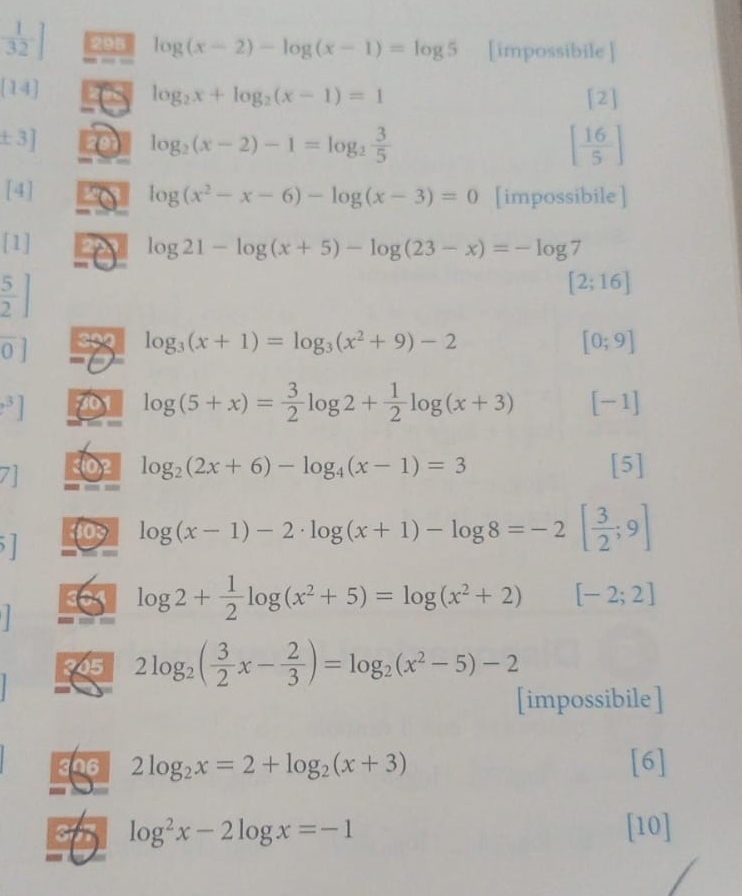 1/32]
295 log(x − 2) − log(x − 1) = log 5 [impossibile]
[14] log₂x + log₂(x − 1) = 1 [2]
± 3] log₂(x − 2) − 1 = log₂ 3/5 [16/5]
[4] log(x² − x − 6) − log(x − 3) = 0 [impossibile]
[1] log 21 − log(x + 5) − log(23 − x) = − log 7
5/2] [2; 16]
0] 300 log₃(x + 1) = log₃(x² + 9) − 2 [0; 9]
³] 301 log(5 + x) = 3/2 log 2 + 1/2 log(x + 3) [−1]
7] 302 log₂(2x + 6) − log₄(x − 1) = 3 [5]
5] 303 log(x − 1) − 2 · log(x + 1) − log 8 = − 2 [3/2; 9]
] 304 log 2 + 1/2 log(x² + 5) = log(x² + 2) [− 2; 2]
] 305 2 log₂(3/2 x − 2/3) = log₂(x² − 5) − 2
[impossibile]
] 306 2 log₂x = 2 + log₂(x + 3) [6]
log²x − 2 log x = −1 [10]